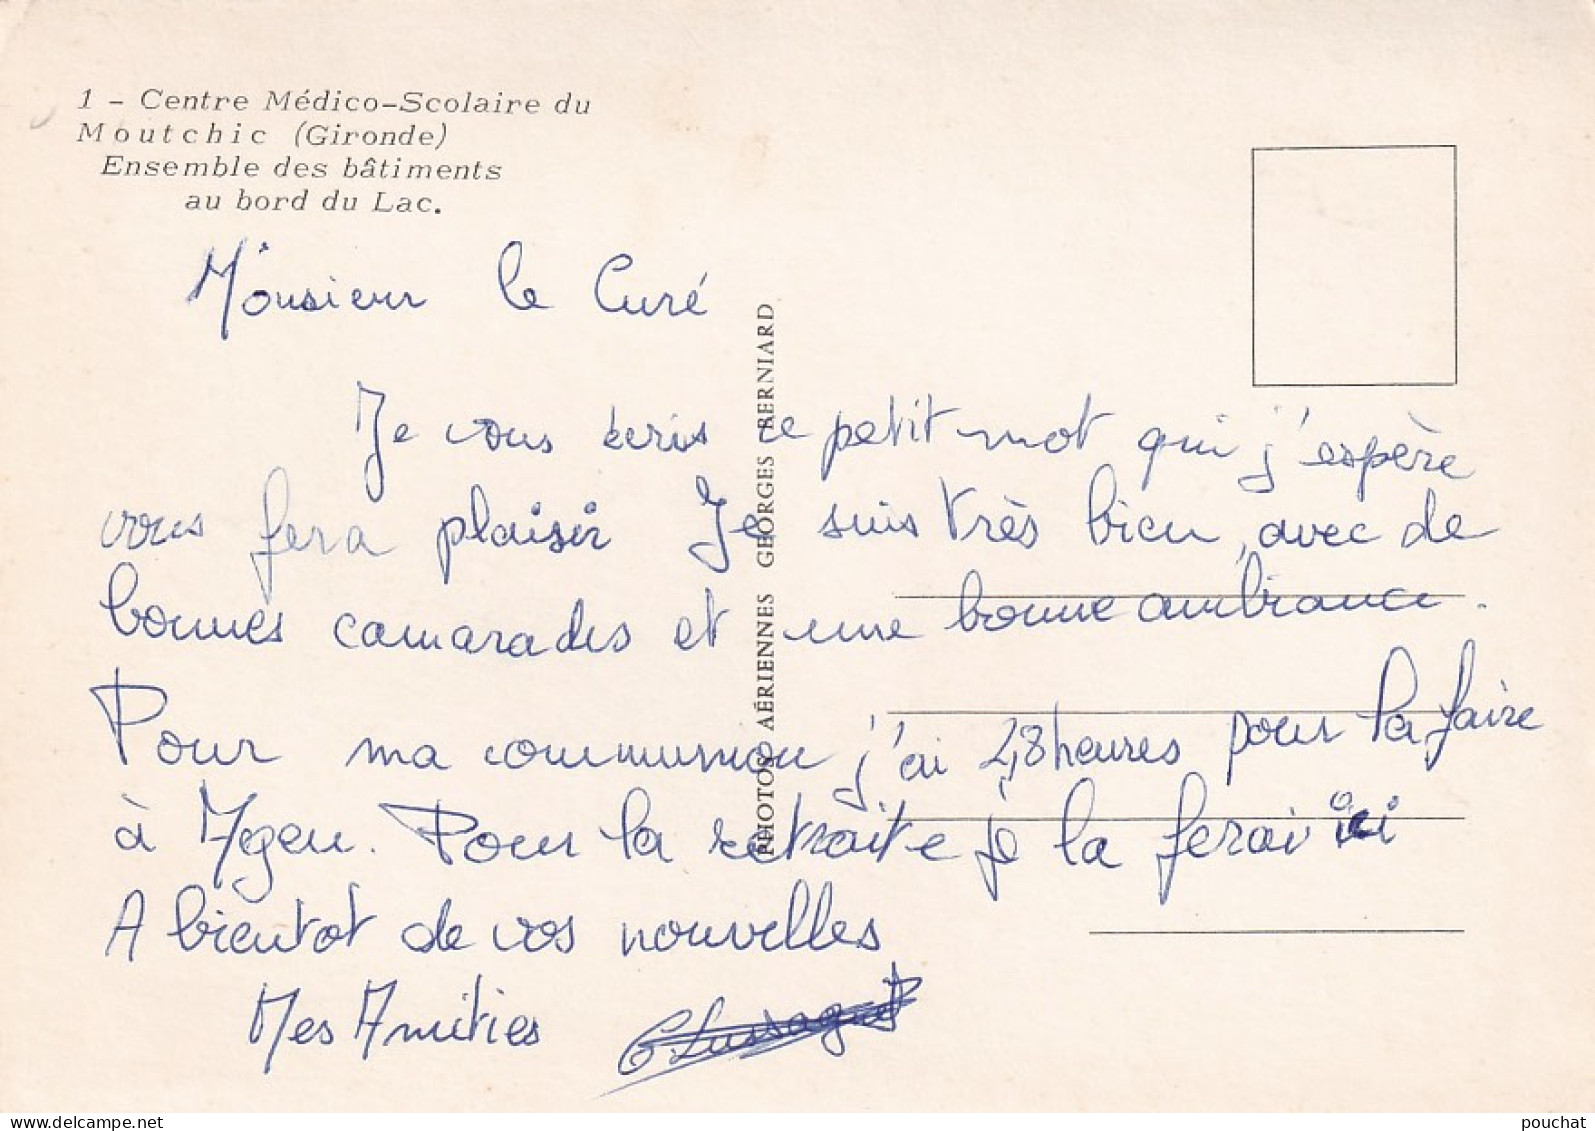 1 - Centre Médico-Scolaire du
Moutchic (Gironde)
Ensemble des bâtiments
au bord du Lac.
Monsieur le Curé
Je vous écris ce petit mot qui j'espère
vous fera plaisir Je suis très bien, avec de
bonnes camarades et une bonne ambiance.
Pour ma communion j'ai 48 heures pour la faire
à Agen. Pour la retraite je la ferai ici
A bientot de vos nouvelles
Mes Amities
PHOTOS AÉRIENNES GEORGES BERNIARD
delcampe.net
pouchat